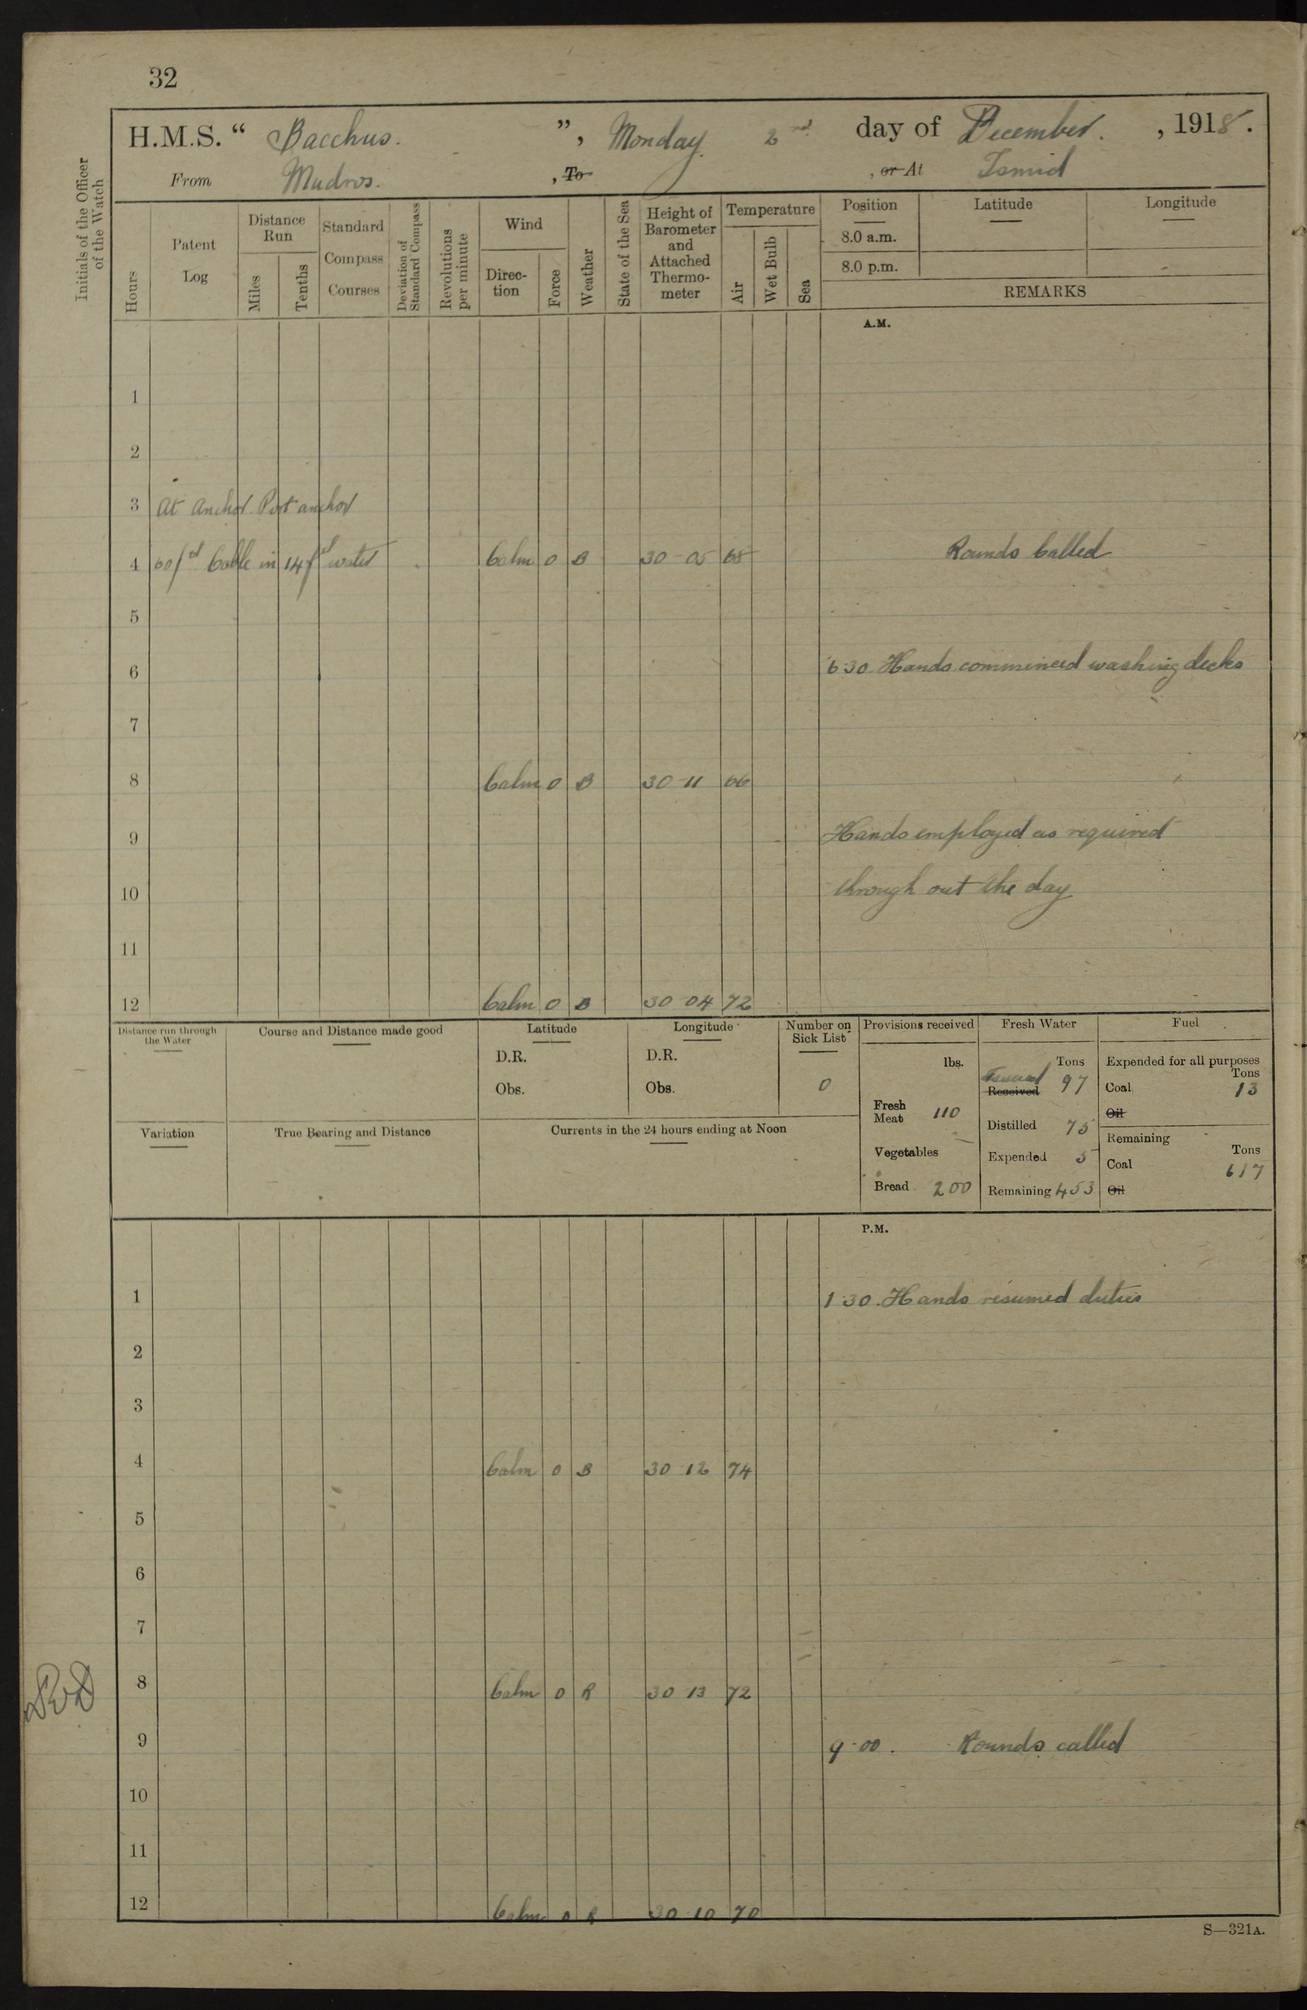 32
H.M.S. “ Bacchus. ”, Monday 2nd day of December. , 1918.
From Mudros. , To , or At Ismid
Initials of the Officer of the Watch
Hours
Patent Log
Distance Run
Miles
Tenths
Standard Compass Courses
Deviation of Standard Compass
Revolutions per minute
Wind
Direc-tion
Force
Weather
State of the Sea
Height of Barometer and Attached Thermo-meter
Temperature
Air
Wet Bulb
Sea
Position
Latitude
Longitude
8.0 a.m.
8.0 p.m.
REMARKS
A.M.
1
2
3 At Anchor Port anchor
4 60 fd Cable in 14 fd water Calm 0 B 30 05 68 Rounds Called
5
6 6 30 Hands commenced washing decks
7
8 Calm 0 B 30 11 66
9 Hands employed as required
10 through out the day
11
12 Calm 0 B 30 04 72
Distance run through the Water
Course and Distance made good
Latitude
D.R.
Obs.
Longitude
D.R.
Obs.
Number on Sick List
0
Variation
True Bearing and Distance
Currents in the 24 hours ending at Noon
Provisions received
lbs.
Fresh Meat 110
Vegetables —
Bread 200
Fresh Water
Tons
Received 97
Distilled 75
Expended 5
Remaining 453
Fuel
Expended for all purposes
Tons
Coal 13
Oil
Remaining
Tons
Coal 617
Oil
P.M.
1 1 30. Hands resumed duties
2
3
4 Calm 0 B 30 12 74
5
6
7
8 Calm 0 R 30 13 72
9 9·00. Rounds called
10
11
12 Calm 0 R 30 10 70
S—321A.